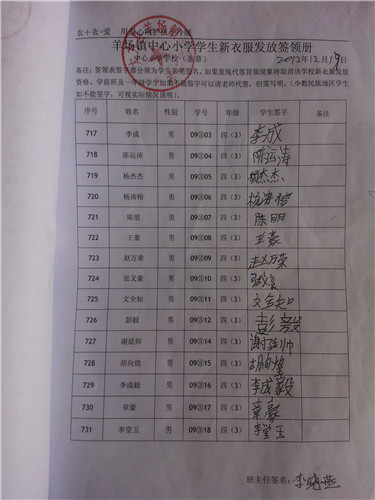 衣+衣=爱
羊场镇中心小学学生新衣服发放签领册
中心小学学校（盖章） 2012年12月19日
备注：签领表签字部分须为学生新笔签名，如果发现代签冒领现象将取消该学校新衣服发放
资格。学前班及一年级学生如果不能签字可以请老师代签，但需写明。（少数民族地区学生
如不能签字，可视实际情况说明）。
序号 姓名 性别 学号 年级 学生签字 备注
717 李成 男 09③03 四（3） 李成
718 陈运涛 男 09③04 四（3） 陈运涛
719 杨杰杰 男 09③05 四（3） 杨杰杰
720 杨涛榕 男 09③06 四（3） 杨涛榕
721 陈 男 09③07 四（3） 陈
722 王豪 男 09③08 四（3） 王豪
723 赵万荣 男 09③09 四（3） 赵万荣
724 张文豪 男 09③10 四（3）
725 文全知 男 09③11 四（3） 文全知
726 彭毅 男 09③12 四（3） 彭毅
727 谢廷帅 男 09③14 四（3） 谢廷帅
728 胡向煌 男 09③15 四（3） 胡向煌
729 李成毅 男 09③16 四（3） 李成毅
730 章豪 男 09③17 四（3） 章豪
731 李堂玉 男 09③18 四（3） 李堂玉
班主任签名：李晓燕